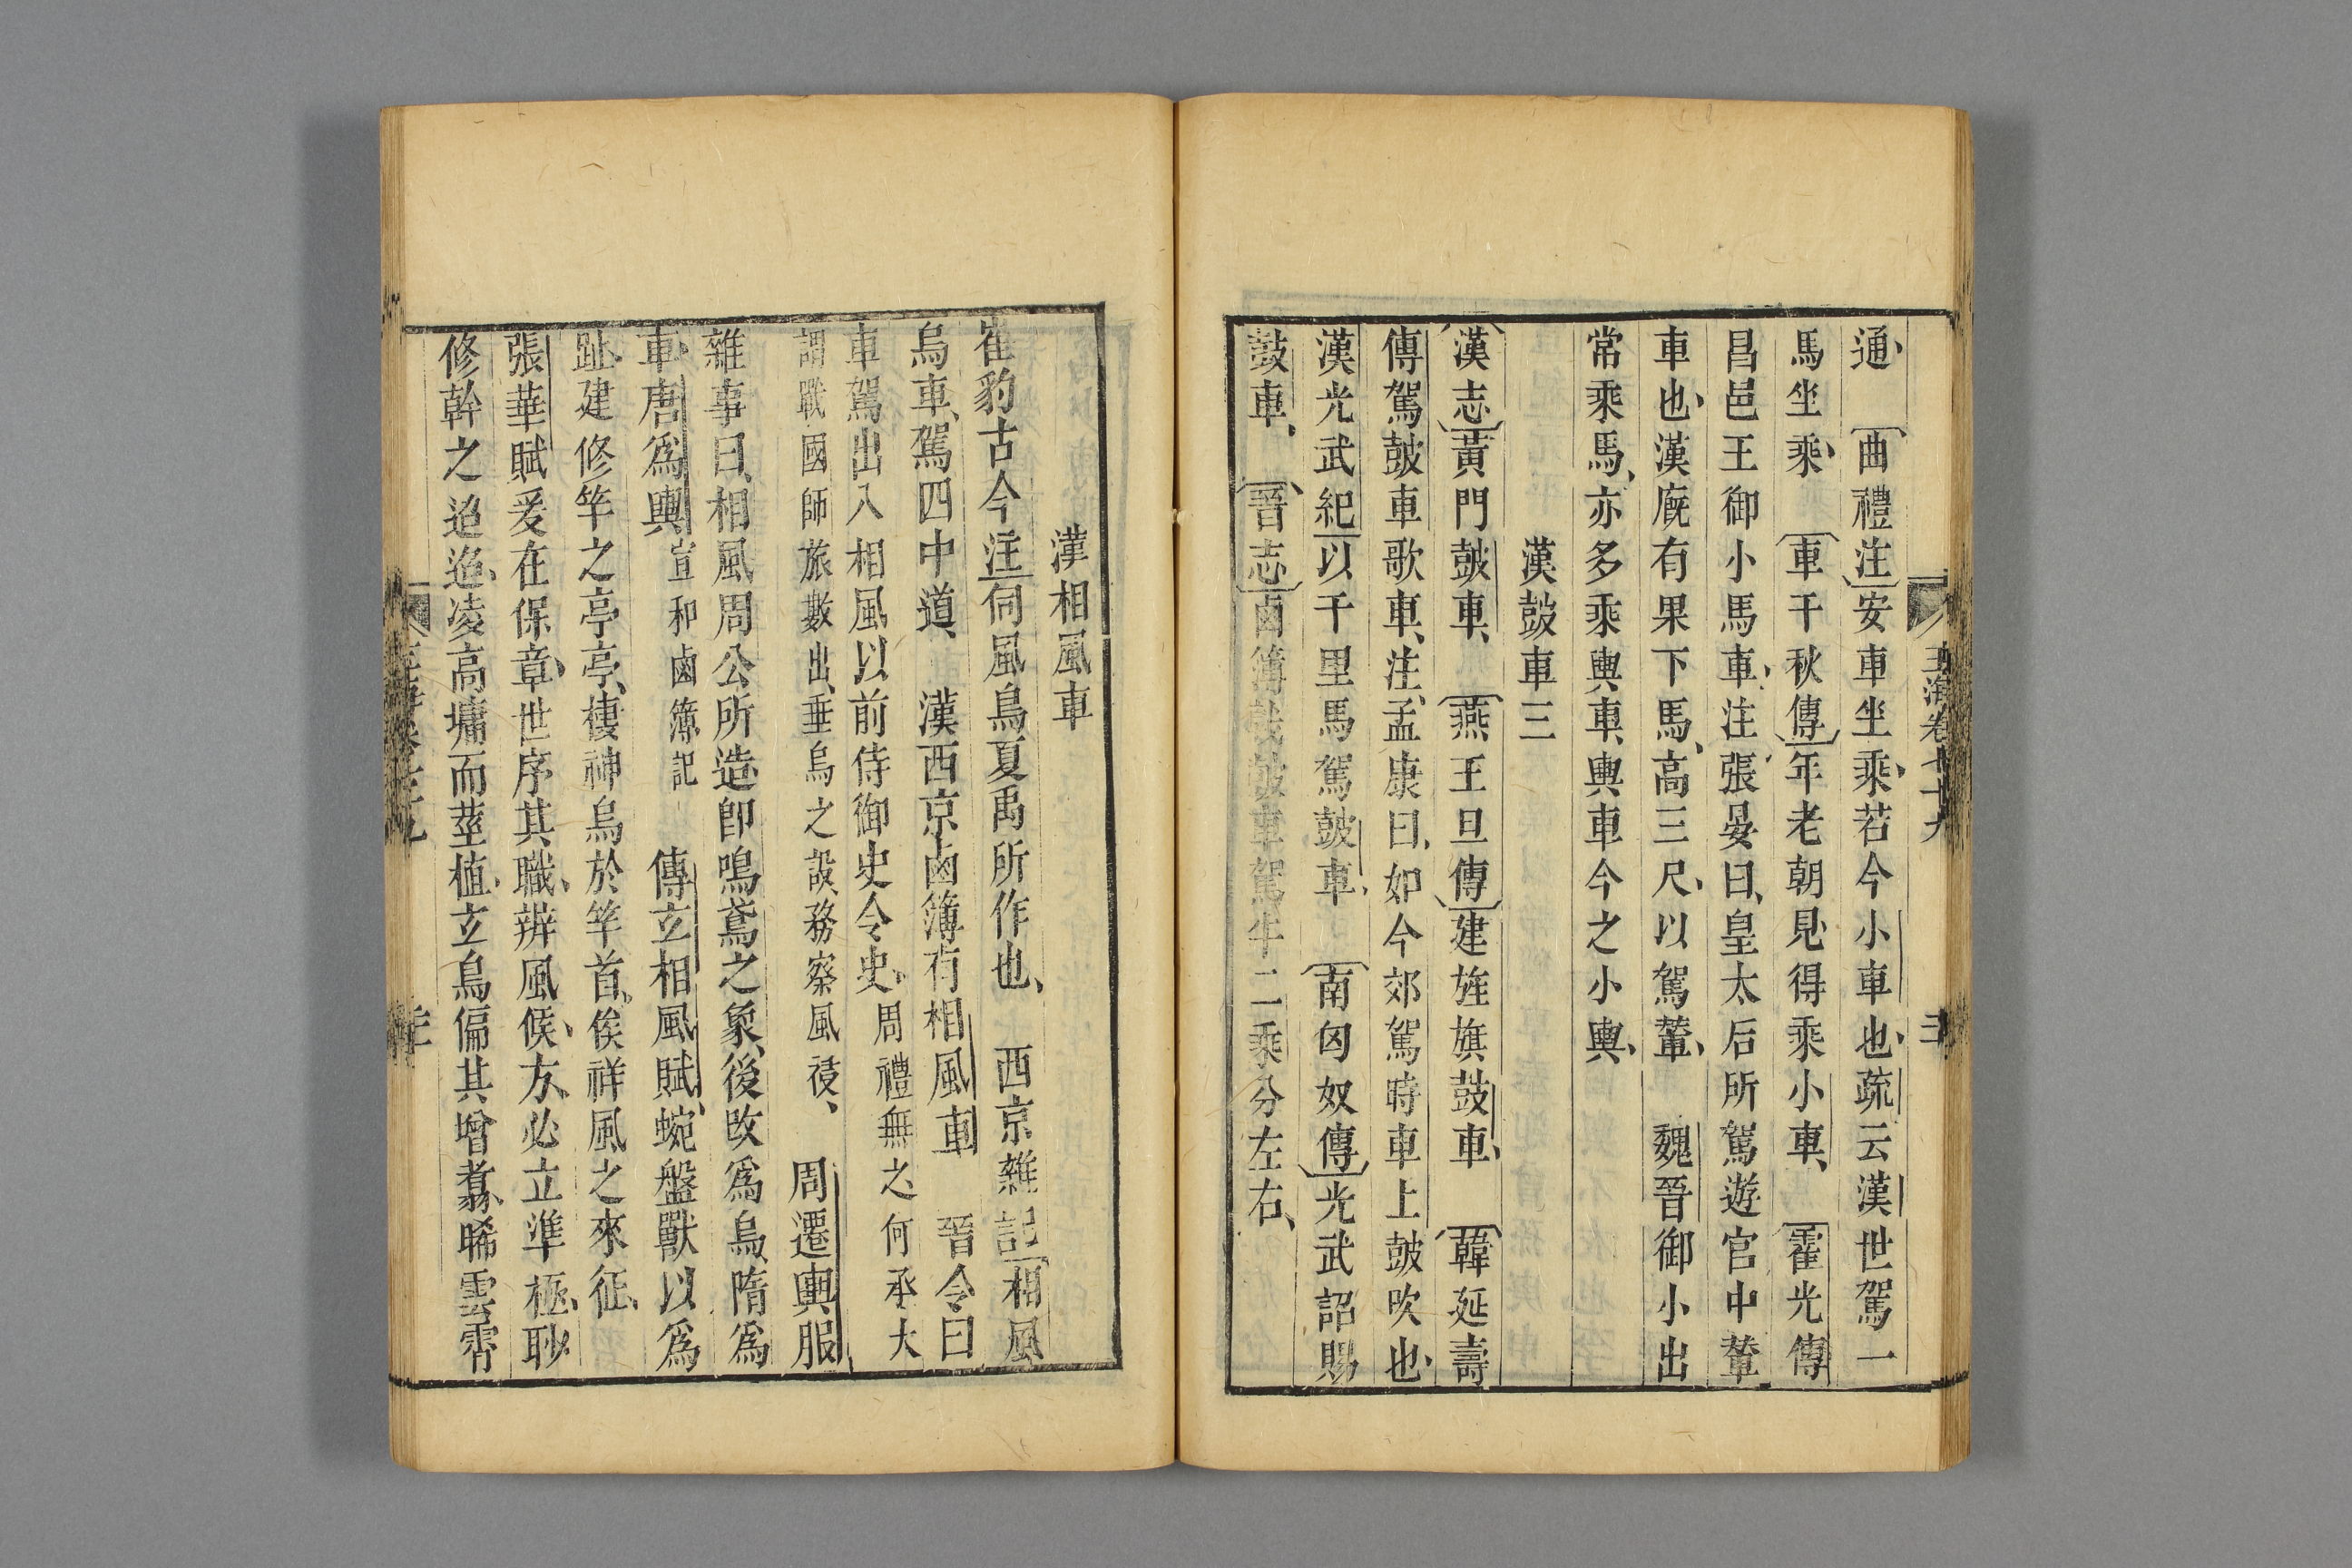 通　曲禮注安車坐乘若今小車也疏云漢世駕一
馬坐乘　車千秋傳年老朝見得乘小車　霍光傳
昌邑王御小馬車注張晏曰皇太后所駕遊宮中輦
車也漢廐有果下馬高三尺以駕輦　魏晉御小出
常乘馬亦多乘輿車輿車今之小輿
漢鼓車三
漢志黃門鼓車　燕王旦傳建旌旗鼓車　韓延壽
傳駕鼓車歌車注孟康曰如今郊駕時車上鼓吹也
漢光武紀以千里馬駕鼓車　南匈奴傳光武詔賜
鼓車　晉志鹵簿戟鼓車駕牛二乘分左右
玉海卷七十九
漢相風車
崔豹古今注伺風鳥夏禹所作也　西京雜記相風
烏車駕四中道　漢西京鹵簿有相風車　晉令曰
車駕出入相風以前侍御史令史周禮無之何承大
謂戰國師旅數出垂烏之設務察風祲　周遷輿服
雜事曰相風周公所造卽鳴鳶之象後改爲烏隋爲
車唐爲輿宣和鹵簿記　傅玄相風賦蜿盤獸以爲
趾建修竿之亭亭棲神烏於竿首俟祥風之來征
張華賦爰在保章世序其職辨風候方必立準極眇
修幹之迢迢凌高墉而莖植玄鳥偏其增翥晞雲霄